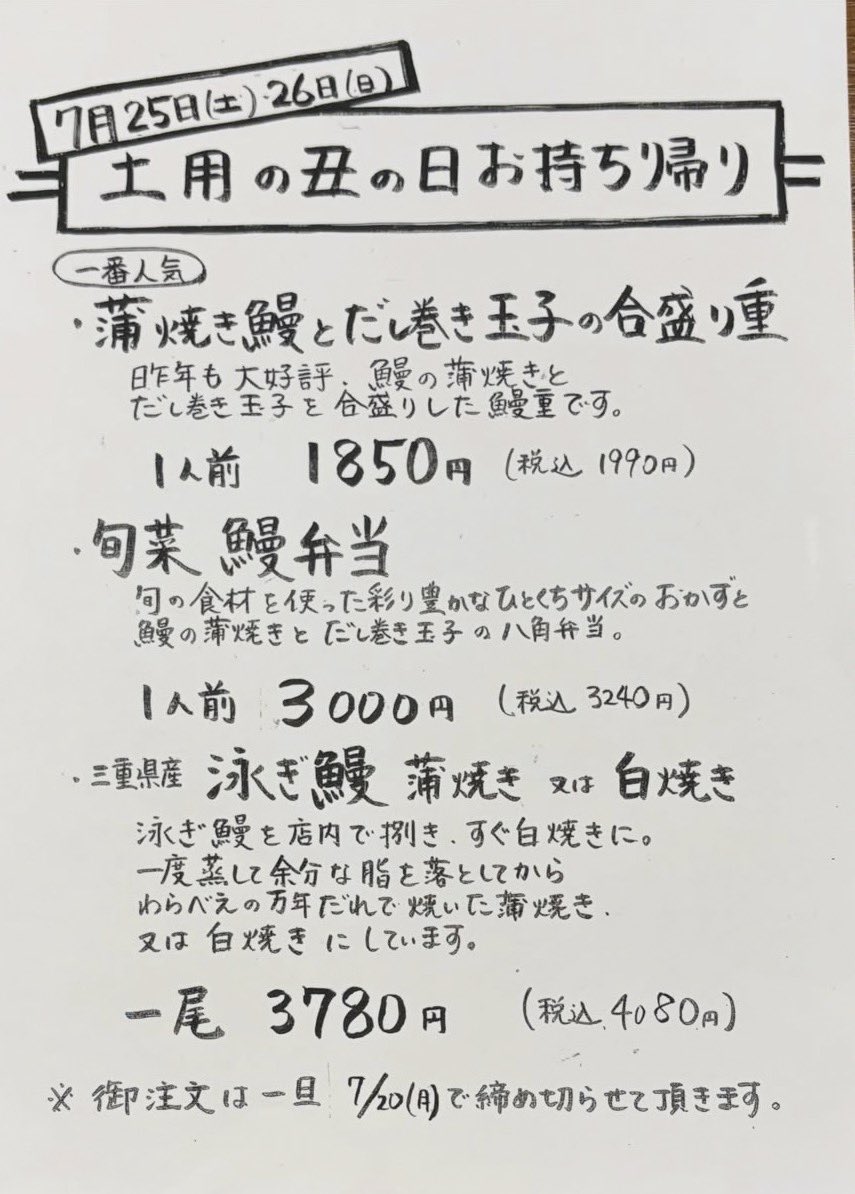 7月25日(土)・26日(日)
土用の丑の日お持ちり帰り
一番人気
・蒲焼き鰻とだし巻き玉子の合盛り重
昨年も大好評、鰻の蒲焼きと
だし巻き玉子を合盛りした鰻重です。
1人前 1850円 (税込 1990円)
・旬菜 鰻弁当
旬の食材を使った彩り豊かなひとくちサイズのおかずと
鰻の蒲焼きとだし巻き玉子の八角弁当。
1人前 3000円 (税込 3240円)
・三重県産 泳ぎ鰻 蒲焼き 又は 白焼き
泳ぎ鰻を店内で捌き、すぐ白焼きに。
一度蒸して余分な脂を落としてから
わらべえの万年だれで焼いた蒲焼き、
又は白焼きにしています。
一尾 3780円 (税込 4080円)
※御注文は一旦 7/20(月)で締め切らせて頂きます。